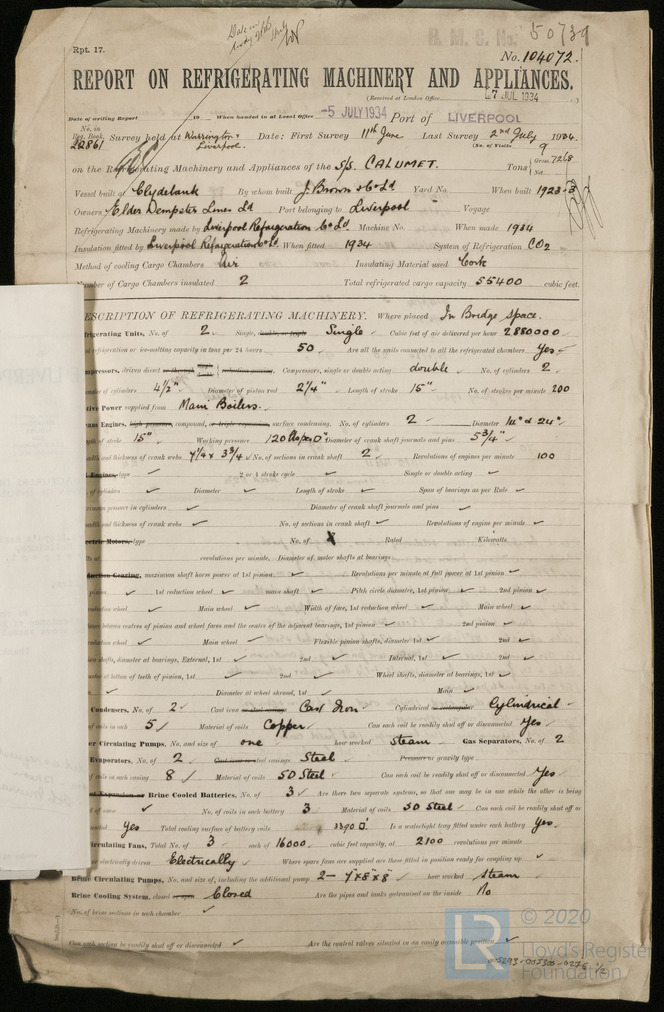 R. M. C. No. 50739
Rpt. 17.
No. 104072.
REPORT ON REFRIGERATING MACHINERY AND APPLIANCES.
(Received at London Office 7 JUL 1934)
Date of writing Report 19 When handed in at Local Office -5 JULY 1934 Port of LIVERPOOL
No. in Reg. Book. 22861 Survey held at Warrington & Liverpool. Date: First Survey 11th June Last Survey 2nd July 1934.
(No. of Visits 9
on the Refrigerating Machinery and Appliances of the S/S. CALUMET. Tons { Gross 7268 Net
Vessel built at Clydebank By whom built J. Brown & Co Ld Yard No. When built 1923-3
Owners Elder Dempster Lines Ld Port belonging to Liverpool Voyage
Refrigerating Machinery made by Liverpool Refrigeration Co Ld Machine No. When made 1934
Insulation fitted by Liverpool Refrigeration Co Ld When fitted 1934 System of Refrigeration CO2
Method of cooling Cargo Chambers Air Insulating Material used Cork
Number of Cargo Chambers insulated 2 Total refrigerated cargo capacity 55400 cubic feet.
ESCRIPTION OF REFRIGERATING MACHINERY. Where placed In Bridge Space.
frigerating Units, No. of 2 Single, double, or triple Single Cubic feet of air delivered per hour 2880000
al refrigeration or ice-melting capacity in tons per 24 hours 50 Are all the units connected to all the refrigerated chambers Yes
mpressors, driven direct or through reduction gearing. Compressors, single or double acting double No. of cylinders 2
meter of cylinders 4 1/2" Diameter of piston rod 2 1/4" Length of stroke 15" No. of strokes per minute 200
tive Power supplied from Main Boilers.
eam Engines, high pressure, compound, or triple expansion, surface condensing. No. of cylinders 2 Diameter 14" & 24"
gth of stroke 15" Working pressure 120 lbs per □" Diameter of crank shaft journals and pins 5 3/4"
adth and thickness of crank webs 7 1/4 x 3 3/4 No. of sections in crank shaft 2 Revolutions of engines per minute 100
Engines, type ✓ 2 or 4 stroke cycle ✓ Single or double acting ✓
of cylinders ✓ Diameter ✓ Length of stroke ✓ Span of bearings as per Rule ✓
ximum pressure in cylinders ✓ Diameter of crank shaft journals and pins ✓
adth and thickness of crank webs ✓ No. of sections in crank shaft ✓ Revolutions of engine per minute ✓
ectric Motors, type No. of X Rated Kilowatts
ts at revolutions per minute. Diameter of motor shafts at bearings
duction Gearing, maximum shaft horse power at 1st pinion ✓ Revolutions per minute at full power at 1st pinion ✓
pinion ✓ 1st reduction wheel ✓ main shaft ✓ Pitch circle diameter, 1st pinion ✓ 2nd pinion ✓
reduction wheel ✓ Main wheel ✓ Width of face, 1st reduction wheel ✓ Main wheel ✓
ance between centres of pinion and wheel faces and the centre of the adjacent bearings, 1st pinion ✓ 2nd pinion ✓
reduction wheel ✓ Main wheel ✓ Flexible pinion shafts, diameter 1st ✓ 2nd ✓
on shafts, diameter at bearings, External, 1st ✓ 2nd ✓ Internal, 1st ✓ 2nd ✓
meter at bottom of teeth of pinion, 1st ✓ 2nd ✓ Wheel shafts, diameter at bearings, 1st ✓
✓ Diameter at wheel shroud, 1st ✓ Main ✓
Condensers, No. of 2 Cast iron or steel casings Cast Iron Cylindrical or rectangular Cylindrical
of coils in each 5 Material of coils Copper Can each coil be readily shut off or disconnected Yes
er Circulating Pumps, No. and size of one how worked Steam Gas Separators, No. of 2
Evaporators, No. of 2 Cast iron or steel casings Steel Pressure or gravity type
of coils in each casing 8 Material of coils SD Steel Can each coil be readily shut off or disconnected Yes
ect Expansion or Brine Cooled Batteries, No. of 3 Are there two separate systems, so that one may be in use while the other is being
✓ No. of coils in each battery 3 Material of coils SD Steel Can each coil be readily shut off or
Yes Total cooling surface of battery coils 3390 □' Is a watertight tray fitted under each battery Yes
irculating Fans, Total No. of 3 each of 16000 cubic feet capacity, at 2100 revolutions per minute
electrically driven Electrically Where spare fans are supplied are these fitted in position ready for coupling up ✓
Brine Circulating Pumps, No. and size of, including the additional pump 2 - 7"x8"x8" how worked Steam
Brine Cooling System, closed or open Closed Are the pipes and tanks galvanised on the inside No
No. of brine sections in each chamber ✓
Can each section be readily shut off or disconnected ✓ Are the control valves situated in an easily accessible position ✓
LR © 2020
Lloyd's Register
Foundation